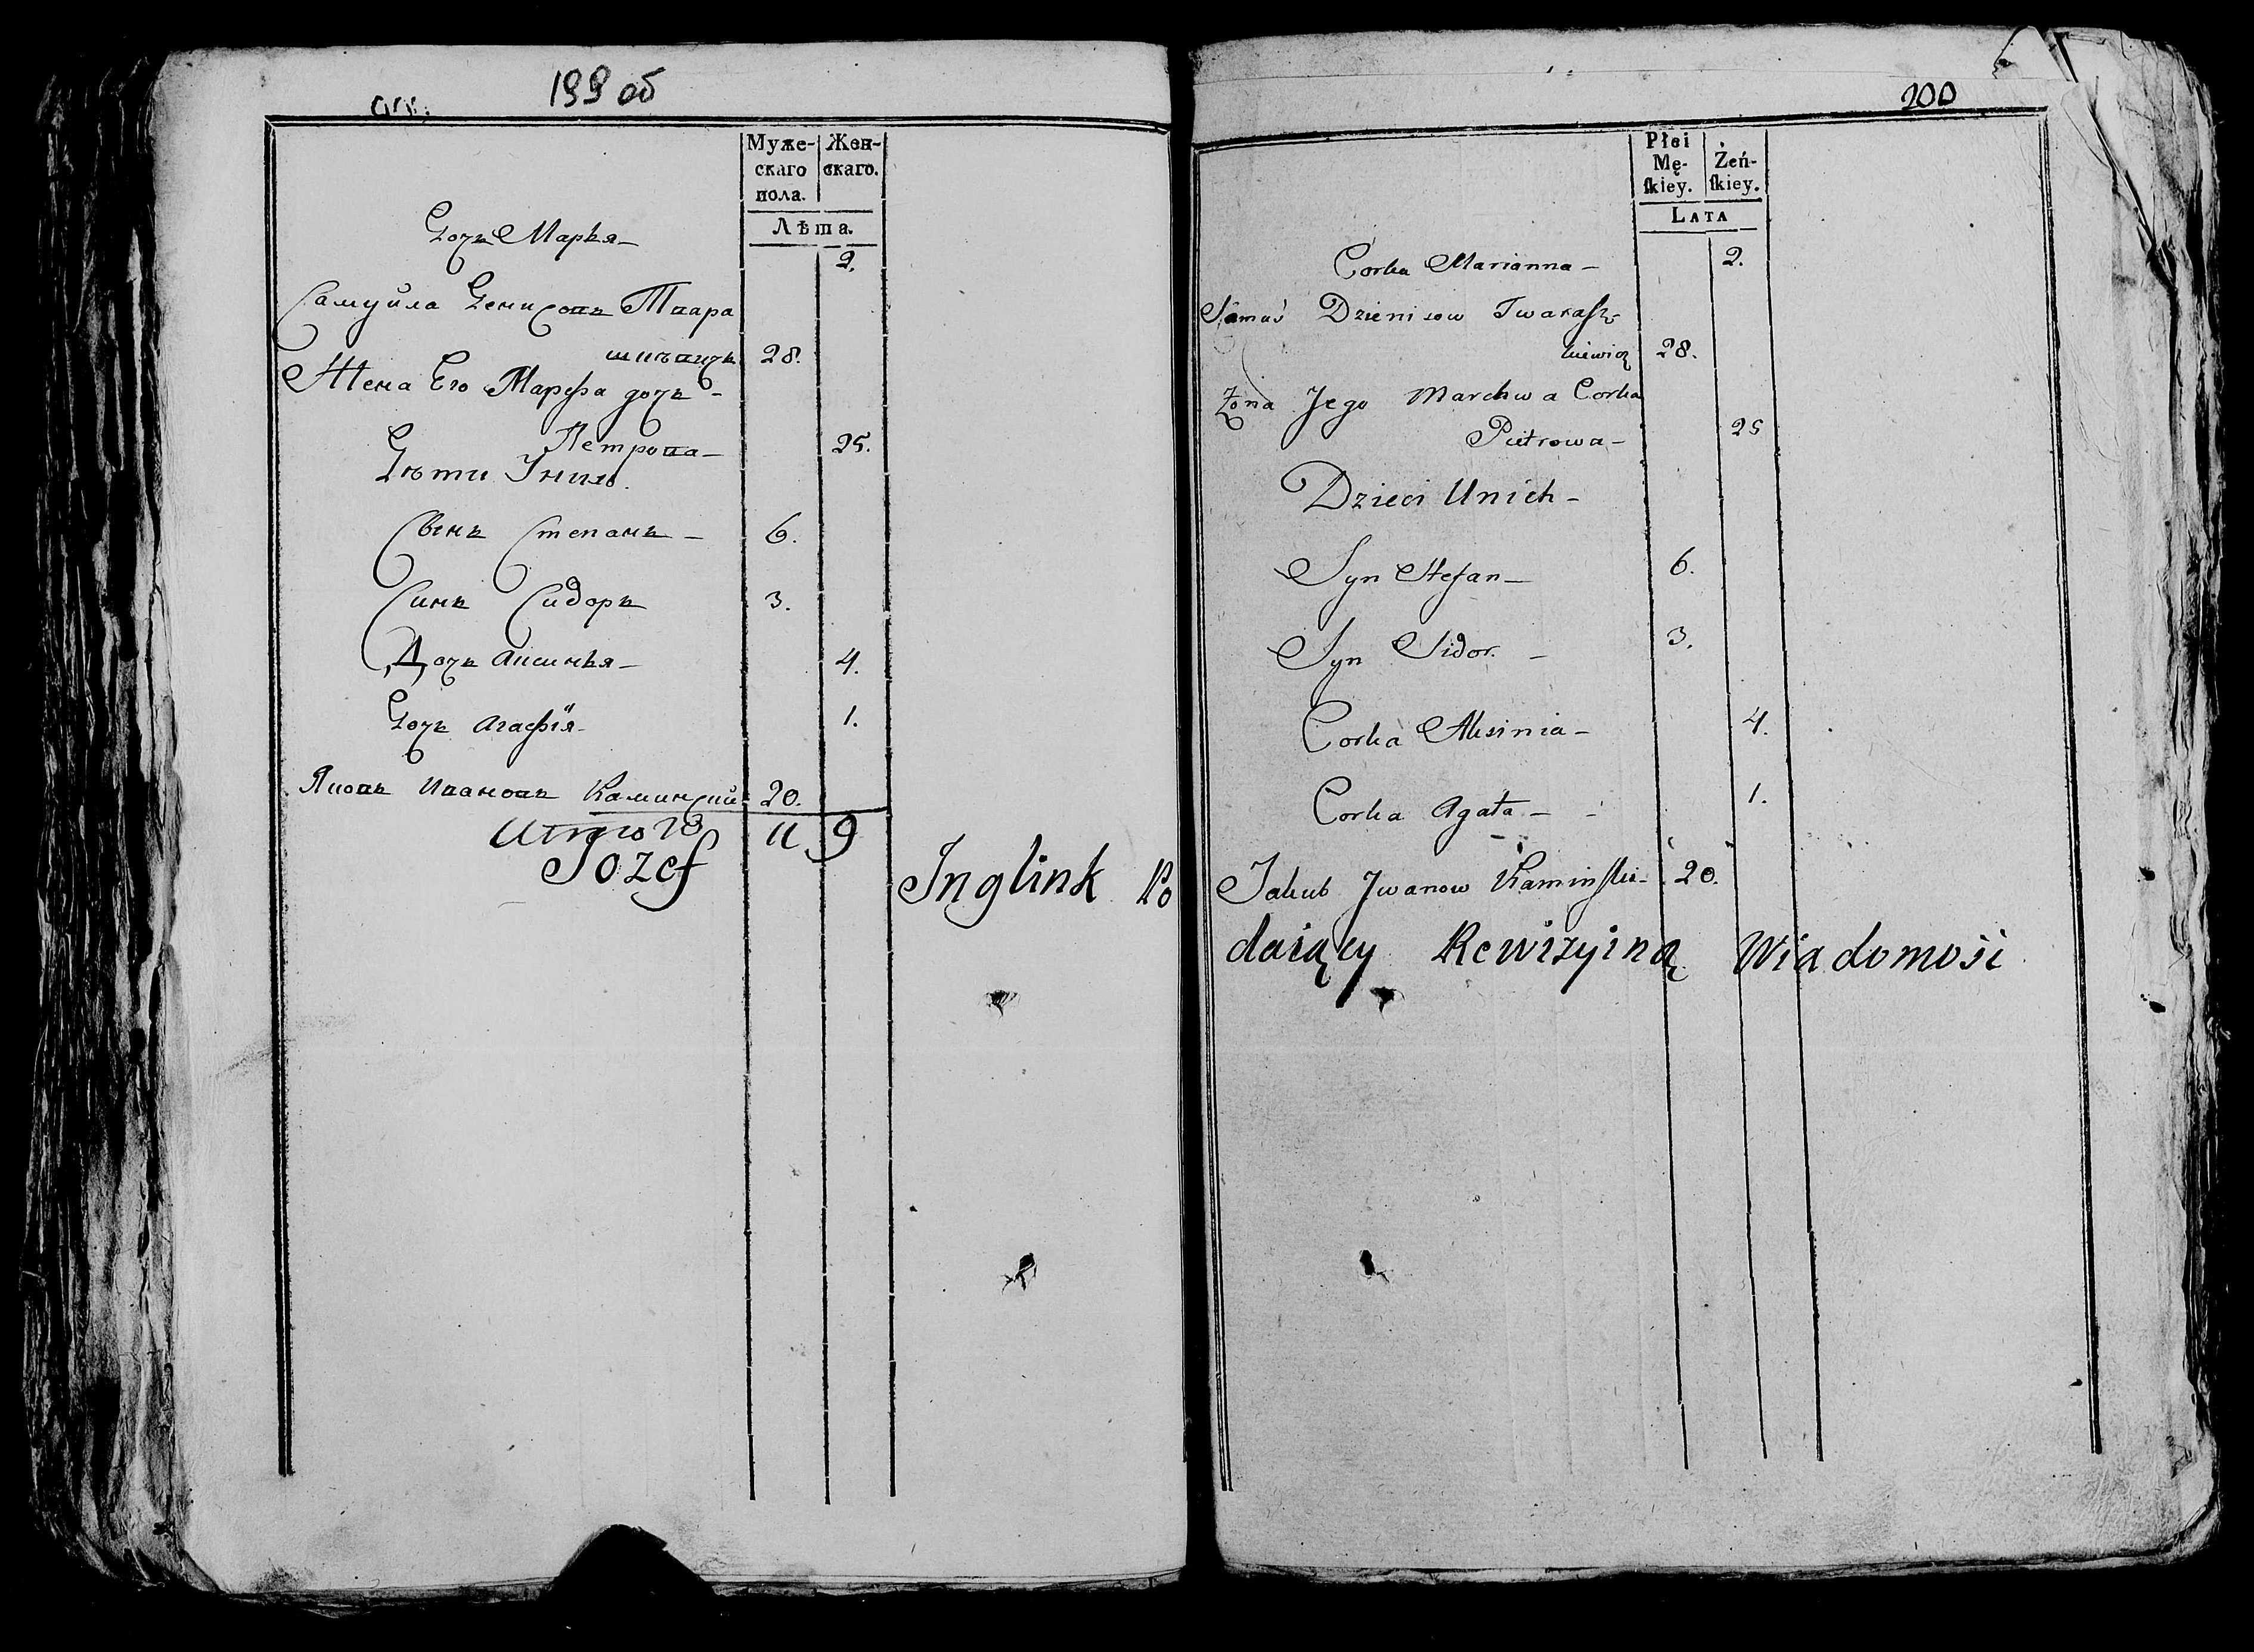 199 об
Муже-
скаго
пола.
Жен-
скаго.
Лѣта.
Дочь Марья — 2.
Самуйла Денисовъ Твара
шкевичъ 28.
Жена Его Марфа дочь -
Петрова — 25.
Дѣти Ихъ.
Сынъ Степанъ — 6.
Синъ Сидоръ 3.
Дочь Аксинья — 4.
Дочь Агафія - 1.
Яковъ Ивановъ Каминскій 20.
Итого 11 9
Jozef Inglink Po
200
Płci
Mę-
ſkiey.
Żeń-
ſkiey.
LATA
Corka Marianna — 2.
Samuś Dzienisow Twaraſz-
kiewicz 28.
Żona Jego Marchwa Corka
Pietrowa — 25
Dzieci Unich —
Syn Stefan — 6.
Syn Sidor. — 3.
Corka Aksinia — 4.
Corka Agata — 1.
Jakub Jwanow Kaminſki - 20.
daiący Rewizyiną Wiadomośi